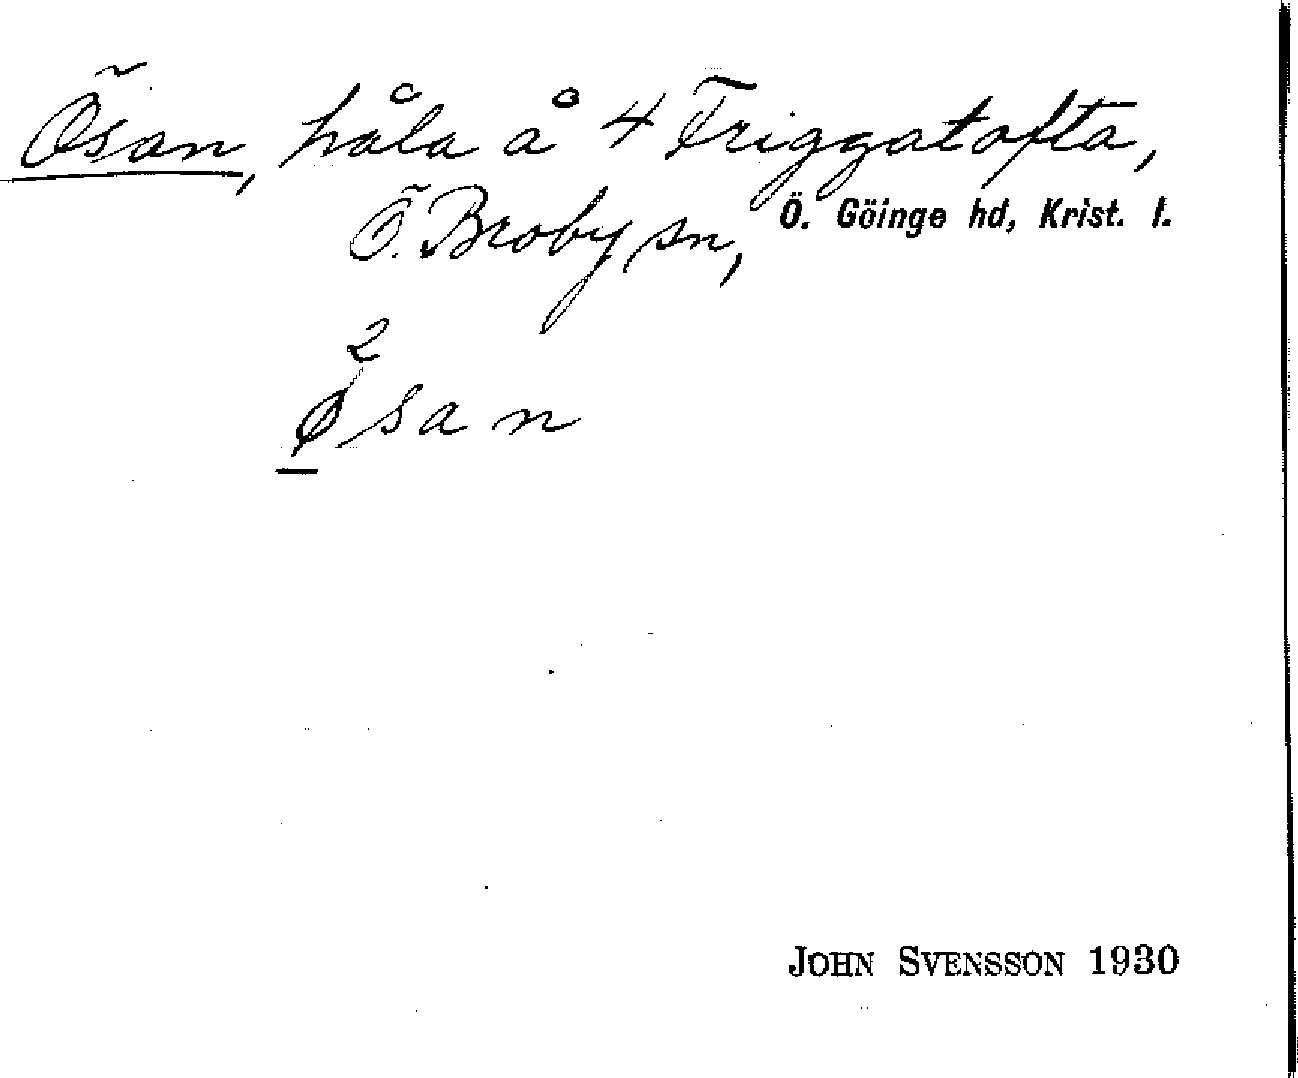 Ösan, håla å 4 Friggatofta,
Ö. Broby sn, Ö. Göinge hd, Krist. l.
2
ø s a n
JOHN SVENSSON 1930